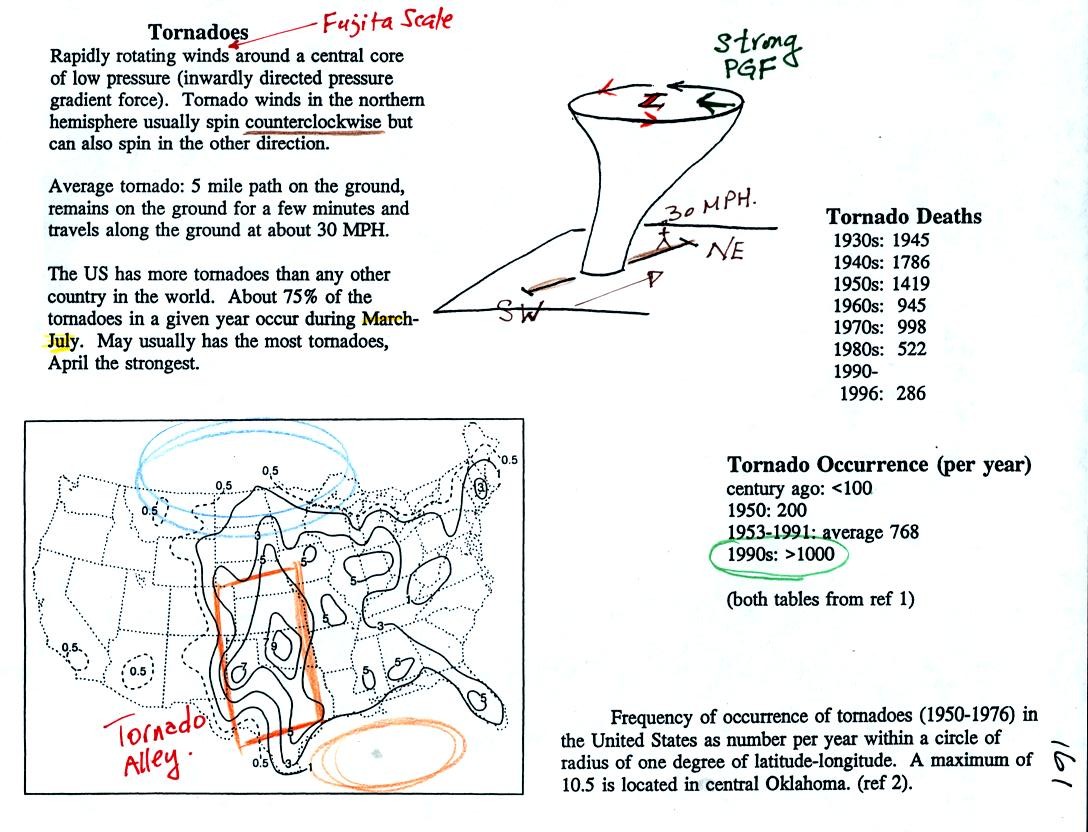 Tornadoes
Fujita Scale
Rapidly rotating winds around a central core
of low pressure (inwardly directed pressure
gradient force). Tornado winds in the northern
hemisphere usually spin counterclockwise but
can also spin in the other direction.
Average tornado: 5 mile path on the ground,
remains on the ground for a few minutes and
travels along the ground at about 30 MPH.
The US has more tornadoes than any other
country in the world. About 75% of the
tornadoes in a given year occur during March-
July. May usually has the most tornadoes,
April the strongest.
Strong
PGF
L
30 MPH.
NE
SW
Tornado Deaths
1930s: 1945
1940s: 1786
1950s: 1419
1960s: 945
1970s: 998
1980s: 522
1990-
1996: 286
Tornado Occurrence (per year)
century ago: <100
1950: 200
1953-1991: average 768
1990s: >1000
(both tables from ref 1)
0.5
0.5
0.5
0.5
3
3
5
5
5
1
5
3
0.5
0.5
7
9
5
5
5
5
0.5
3
1
Tornado
Alley.
Frequency of occurrence of tornadoes (1950-1976) in
the United States as number per year within a circle of
radius of one degree of latitude-longitude. A maximum of
10.5 is located in central Oklahoma. (ref 2).
161